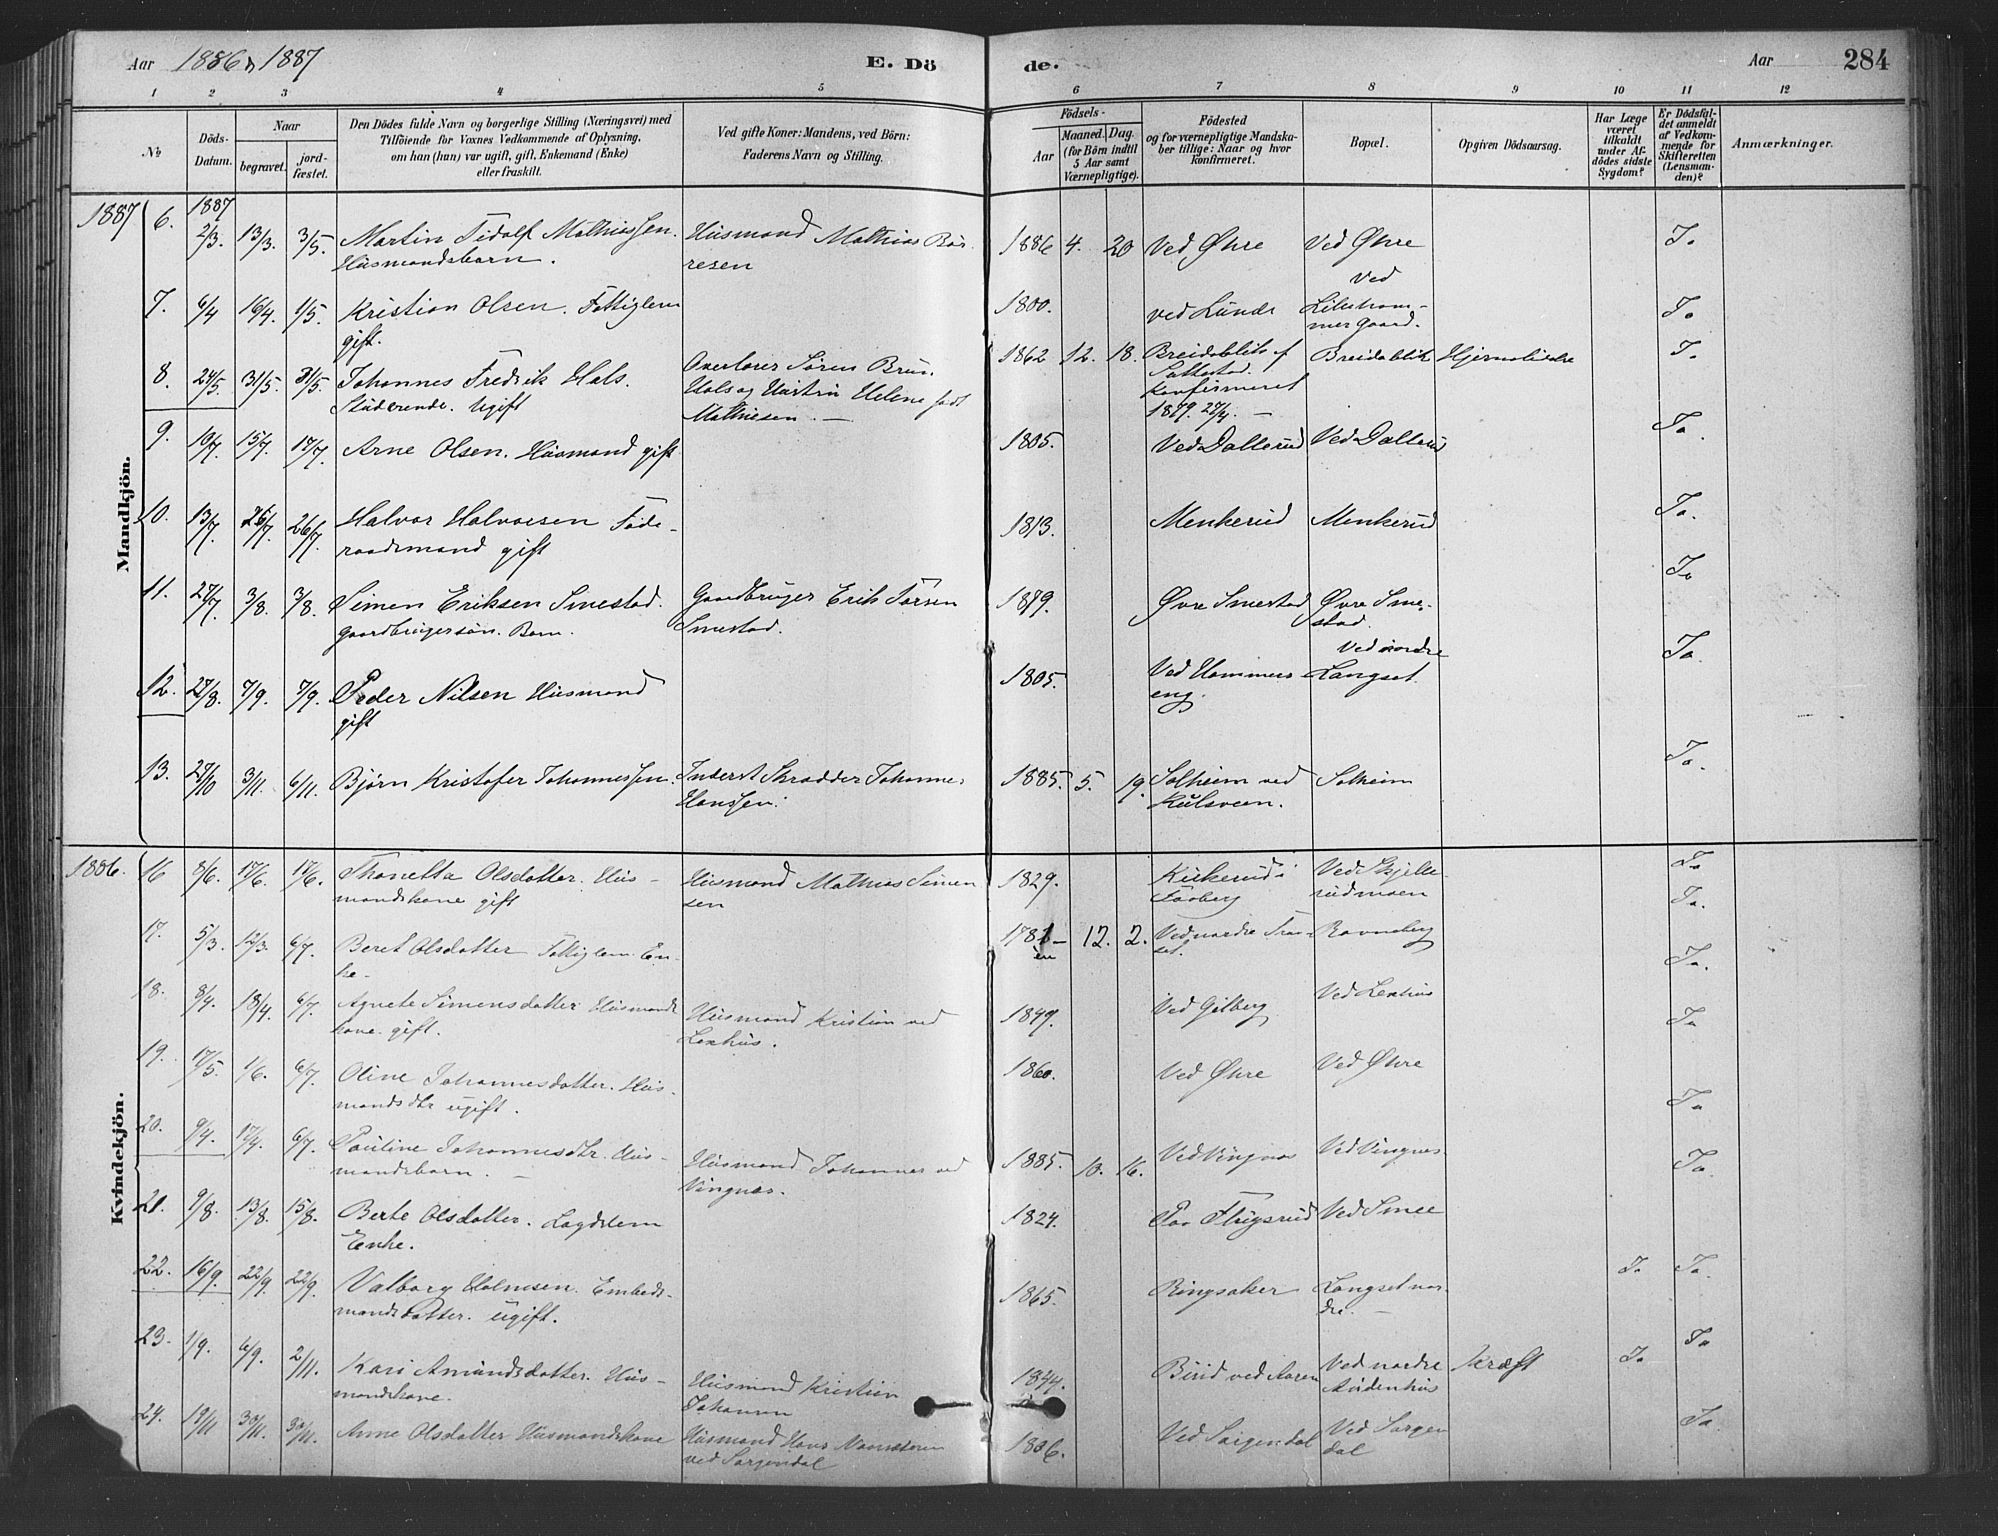 Aar 1886 & 1887
E. Dö
de.
Aar
284
1 2 3 4 5 6 7 8 9 10 11 12
№
Döds-Datum.
Naar
begravet.
jord-fæstet.
Den Dödes fulde Navn og borgerlige Stilling (Næringsvei) med
Tilföiende for Voxnes Vedkommende af Oplysning,
om han (hun) var ugift, gift, Enkemand (Enke)
eller fraskilt.
Ved gifte Koner: Mandens, ved Börn:
Faderens Navn og Stilling.
Födsels-
Aar
Maaned. Dag.
(for Börn indtil
5 Aar samt
Værnepligtige).
Födested
og for værnepligtige Mandska-
ber tillige: Naar og hvor
konfirmeret.
Bopæl.
Opgiven Dödsaarsag.
Har Læge
været
tilkaldt
under Af-
dödes sidste
Sygdom?
Er Dödsfal-
det anmeldt
af Vedkom-
mende for
Skifteretten
(Lensman-
den)?
Anmærkninger.
Mandkjön.
1887
6. 1887 2/3. 13/3. 3/5. Martin Fidolf Mathiassen. Husmand Mathias Bør- 1886 4. 20 Ved Øhre Ved Øhre Ja
Husmandsbarn. resen
7. 6/4 16/4. 1/5. Kristian Olsen. Fattiglem 1800. ved Lunde Ved Lilleham- Ja
gift. mer gaard.
8. 24/5. 31/5. 31/5. Johannes Fredrik Hals. Overlærer Søren Brun 1862 12. 18. Breidablik Breidablik Ja
Studerende. Ugift Hals og Hustru Helene født konfirmeret
Mathiesen. — 1879. —
9. 10/7. 15/7. 17/7. Arne Olsen. Husmand gift 1805. Ved Dallerud Ved Dallerud Ja.
10. 13/7. 26/7. 26/7. Halvor Halvorsen Føde- 1813. Menkerud Menkerud Ja.
raadsmand gift
11. 27/7. 3/8. 3/8. Simen Eriksen Smestad. Gaardbruger Erik Smestad. 1879. Øvre Smestad Øvre Sme- Ja
Gaardbrugersøn. Barn. stad.
12. 27/8. 7/9. 7/9. Peder Nilsen Husmand 1805. Ved Hammers Ved nordre Ja.
gift eng. Langset.
13. 27/10 3/11. 6/11. Bjørn Kristofer Johannessen. Inderst Skrædder Johannes 1885. 5. 19. Solheim ved Solheim Ja.
Hanssen.
Kvindekjön.
1886.
16 8/6. 17/6. 17/6. Thonetta Olsdatter. Hus- Husmand Mathias Simen 1829. Kukerud i Ved Skjelle- Ja
mandskone gift sen Faaberg rudmoen
17. 5/3. 12/3. 6/7. Beret Olsdatter Fattiglem. En- 12. 2. Ved nordre Ja.
ke.
18. 8/4. 18/4. 6/7. Agnete Simensdatter Husmands Husmand Kristian ved 1849. Ved Gilberg Ja.
kone gift.
19. 17/5. 1/6. 6/7. Oline Johannesdatter. Hus- 1860. Ved Øhre Ved Øhre Ja
mandsdtr ugift.
20. 9/4. 17/4. 6/7. Pauline Johannesdtr. Hus- Husmand Johannes ved 1885. 10. 16. Ved Vingnes Ved Vingnes. Ja
mandsbarn. — Vingnes.
21. 9/8. 13/8. 15/8. Berte Olsdatter. Lægdslem 1824. Paa Flugsrud Ved Smee Ja.
Enke.
22. 16/9. 22/9. 22/9. Valborg Holmsen. Embeds- 1865. Ringsaker Langset nor- Ja Ja.
mandsdatter. ugift. dre. —
23. 1/9. 6/9. 2/11. Kari Amundsdatter. Hus- Husmand Kristian 1844. Birid ved Ved nordre Kræft Ja Ja
mandskone. Johansen
24. 19/11 30/11. 30/11. Anne Olsdatter Husmandskone Husmand Hans 1806. Ved Ja